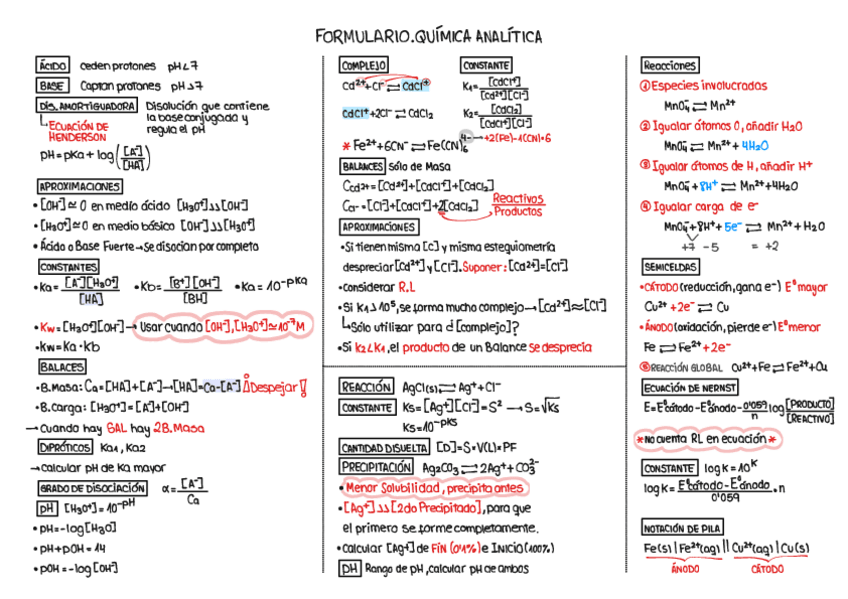 FORMULARIO.QUÍMICA ANALÍTICA
ÁCIDO ceden protones pH<7
BASE Captan protones pH>7
DIS.AMORTIGUADORA Disolución que contiene
la base conjugada y
regula el pH
ECUACIÓN DE
HENDERSON
pH=pKa+log([A⁻]/[HA])
APROXIMACIONES
•[OH⁻]≃0 en medio ácido [H₃O⁺]>>[OH⁻]
•[H₃O⁺]≃0 en medio básico [OH⁻]>>[H₃O⁺]
•Ácido o Base Fuerte→Se disocian por completo
CONSTANTES
•Ka=[A⁻][H₃O⁺]/[HA] •Kb=[B⁺][OH⁻]/[BH] •Ka=10⁻ᵖᴷᵃ
•Kw=[H₃O⁺][OH⁻]→Usar cuando [OH⁻],[H₃O⁺]≃10⁻⁷M
•Kw=Ka·Kb
BALACES
•B.Masa: Ca=[HA]+[A⁻]→[HA]=Ca-[A⁻] ¡Despejar!
•B.Carga: [H₃O⁺]=[A⁻]+[OH⁻]
→Cuando hay SAL hay 2B.Masa
DIPRÓTICOS Ka1,Ka2
→calcular pH de Ka mayor
GRADO DE DISOCIACIÓN α=[A⁻]/Ca
pH [H₃O⁺]=10⁻ᵖᴴ
•pH=-log[H₃O]
•pH+pOH=14
•pOH=-log[OH⁻]
COMPLEJO CONSTANTE
Cd²⁺+Cl⁻⇌CdCl⁺ K₁=[CdCl⁺]/[Cd²⁺][Cl⁻]
CdCl⁺+2Cl⁻⇌CdCl₂ K₂=[CdCl₂]/[CdCl⁺][Cl⁻]
*Fe²⁺+6CN⁻⇌Fe(CN)₆⁴⁻→+2(Fe)-1(CN)·6
BALANCES Sólo de Masa
C_Cd²⁺=[Cd²⁺]+[CdCl⁺]+[CdCl₂]
C_Cl⁻=[Cl⁻]+[CdCl⁺]+2[CdCl₂] Reactivos/Productos
APROXIMACIONES
•Si tienen misma [c] y misma estequiometría
despreciar [Cd²⁺] y [Cl⁻].Suponer:[Cd²⁺]=[Cl⁻]
•considerar R.L
•Si K₁>10⁵,se forma mucho complejo→[Cd²⁺]≈[Cl⁻]
Sólo utilizar para d [complejo]?
•Si K₂<K₁,el producto de un Balance se desprecia
REACCIÓN AgCl(s)⇌Ag⁺+Cl⁻
CONSTANTE Ks=[Ag⁺][Cl⁻]=S²→S=√Ks
Ks=10⁻ᵖᴷˢ
CANTIDAD DISUELTA [D]=S·V(L)·PF
PRECIPITACIÓN Ag₂CO₃⇌2Ag⁺+CO₃²⁻
•Menor Solubilidad, precipita antes
•[Ag⁺]>>[2do Precipitado],para que
el primero se forme completamente.
•Calcular [Ag⁺] de FIN (0'1%) e INICIO(100%)
PH Rango de pH,calcular pH de ambos
Reacciones
① Especies involucradas
MnO₄⁻⇌Mn²⁺
② Igualar átomos O, añadir H₂O
MnO₄⁻⇌Mn²⁺+4H₂O
③ Igualar átomos de H, añadir H⁺
MnO₄⁻+8H⁺⇌Mn²⁺+4H₂O
④ Igualar carga de e⁻
MnO₄⁻+8H⁺+5e⁻⇌Mn²⁺+H₂O
+7 -5 = +2
SEMICELDAS
•CÁTODO(reducción,gana e⁻) E°mayor
Cu²⁺+2e⁻⇌Cu
•ÁNODO(oxidación,pierde e⁻)E°menor
Fe⇌Fe²⁺+2e⁻
⑤REACCIÓN GLOBAL Cu²⁺+Fe⇌Fe²⁺+Cu
ECUACIÓN DE NERNST
E=E°cátodo-E°ánodo-0'059/n log[PRODUCTO]/[REACTIVO]
*NO cuenta RL en ecuación*
CONSTANTE log K=10ᴷ
log K=E°cátodo-E°ánodo/0'059·n
NOTACIÓN DE PILA
Fe(s)|Fe²⁺(aq)||Cu²⁺(aq)|Cu(s)
ÁNODO CÁTODO